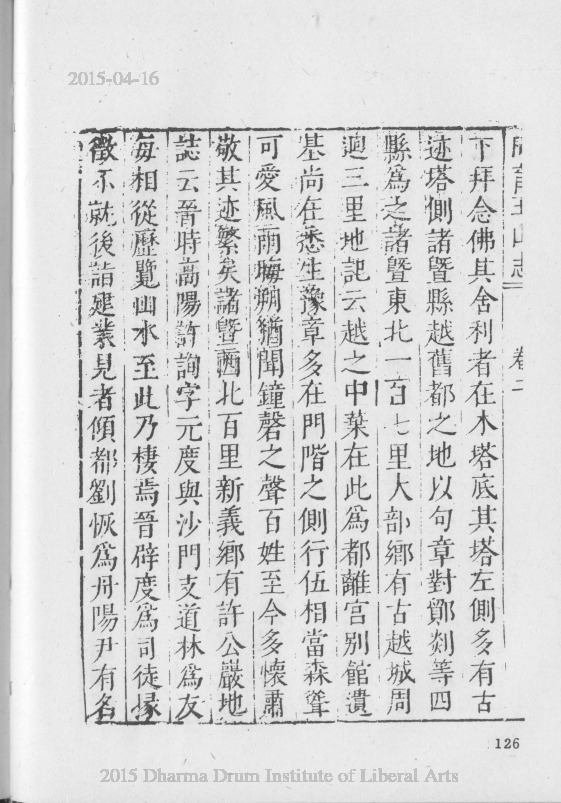 2015-04-16
育王山志 卷二
下拜念佛其舍利者在木塔底其塔左側多有古
迹塔側諸暨縣越舊都之地以句章對鄮剡等四
縣爲之諸暨東北一百七里大部鄉有古越城周
迴三里地記云越之中葉在此爲都離宮别館遺
基尚在悉生豫章多在門階之側行伍相當森聳
可愛風雨晦朔猶聞鐘磬之聲百姓至今多懷肅
敬其迹繁矣諸暨西北百里新義鄉有許公巖地
誌云晉時高陽許詢字元度與沙門支道林爲友
每相從歷覽山水至此乃棲焉晉辟度爲司徒掾
徵不就後詣建業見者傾都劉恢爲丹陽尹有名
126
2015 Dharma Drum Institute of Liberal Arts